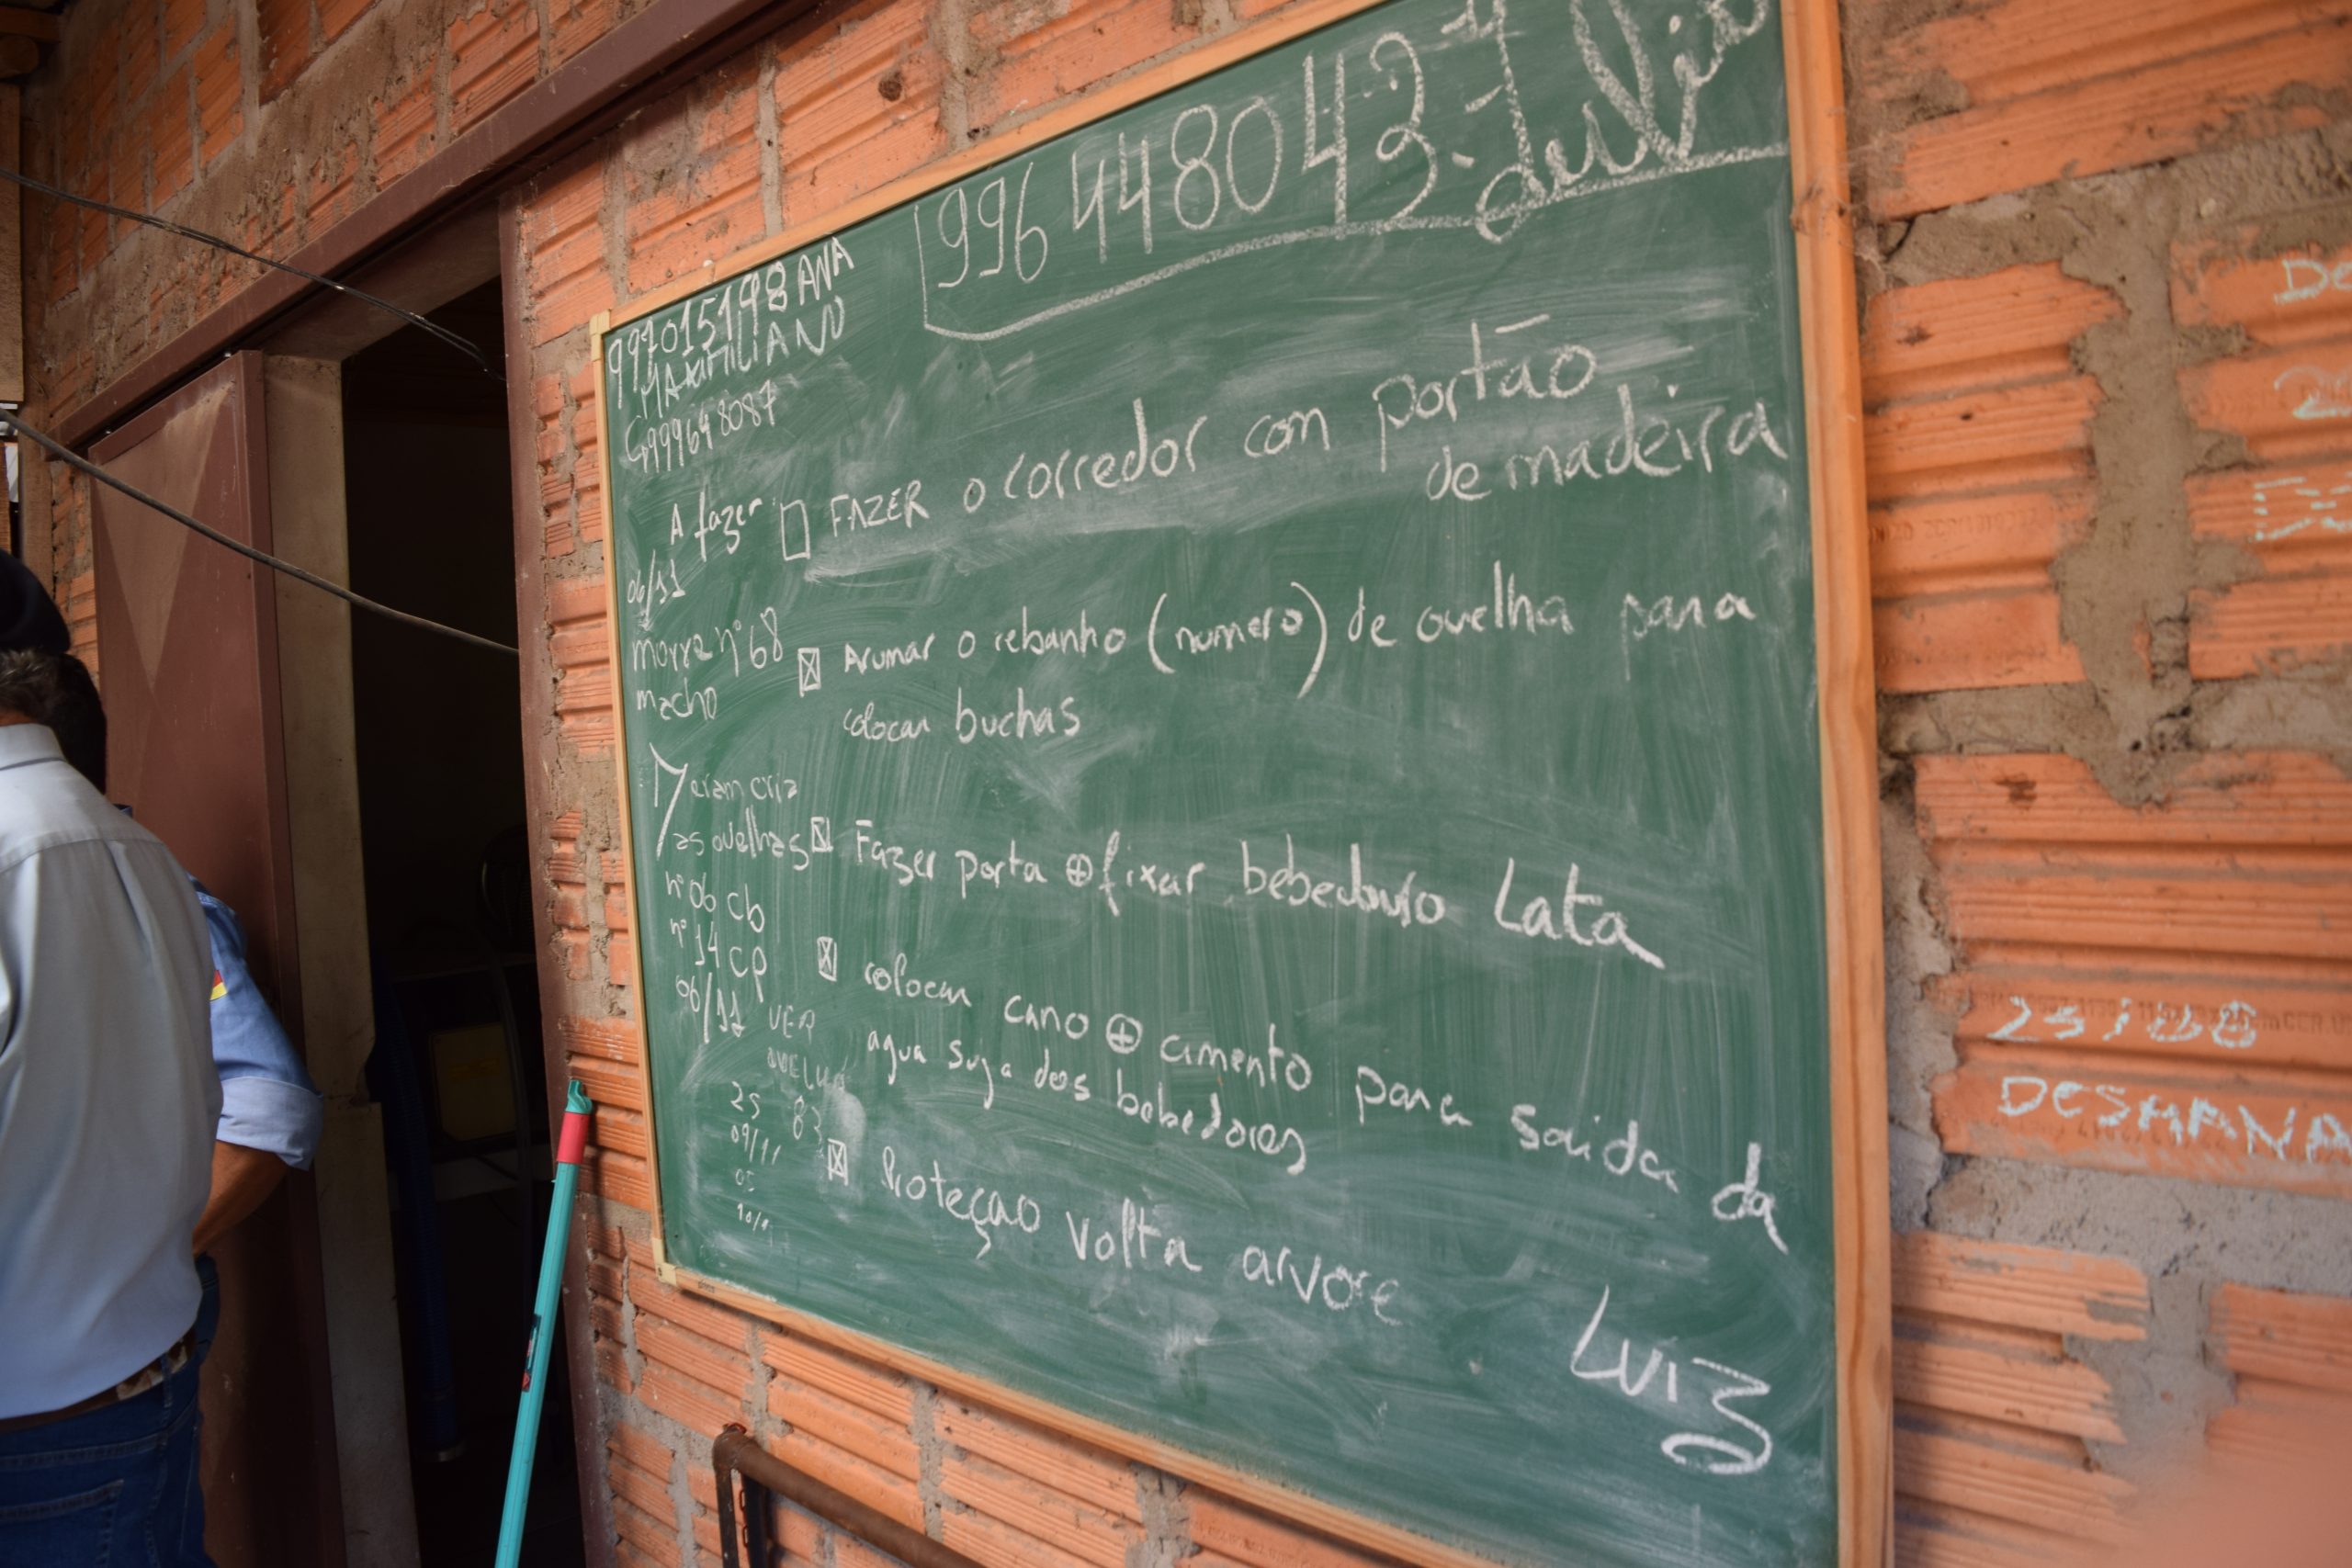 996448043-
997015198 ANA
MAXIMILIANO
999648087
A fazer
FAZER o corredor com portão
de madeira
06/11
morre nº 68
macho
Arumar o rebanho (numero) de ovelha para
colocar buchas
eram cria
as ovelhas
nº 06 cb
nº 14 CP
06/11
Fazer porta ⊕ fixar bebedouro Lata
colocar cano ⊕ cimento para saida da
agua suja dos bebedores
VER
OVELHA
25 83
09/11
05
Proteçao volta arvore
LUIZ
DE
2
25/08
DESMANA